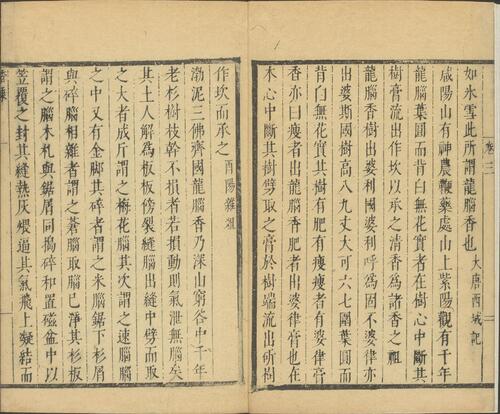 卷三
如氷雪此所謂龍腦香也 大唐西域記
咸陽山有神農鞭藥處山上紫陽觀有千年
龍腦葉圓而背白無花實者在樹心中斷其
樹膏流出作坎以承之清香為諸香之祖
龍腦香樹出婆利國婆利呼為固不婆律亦
出婆斯國樹高八九丈大可六七圍葉圓而
背白無花實其樹有肥有瘦瘦者有婆律膏
香亦曰瘦者出龍腦香肥者出婆律膏也在
木心中斷其樹劈取之膏於樹端流出斫樹
作坎而承之 酉陽雜俎
渤泥三佛齊國龍腦香乃深山窮谷中千年
老杉樹枝幹不損者若損動則氣泄無腦矣
其土人解為板板傍裂縫腦出縫中劈而取
之大者成斤謂之梅花腦其次謂之速腦腦
之中又有金脚其碎者謂之米腦鋸下杉屑
與碎腦相雜者謂之蒼腦取腦已淨其杉板
謂之腦木札與鋸屑同搗碎和置磁盆中以
笠覆之封其縫熱灰煨逼其氣飛上凝結而